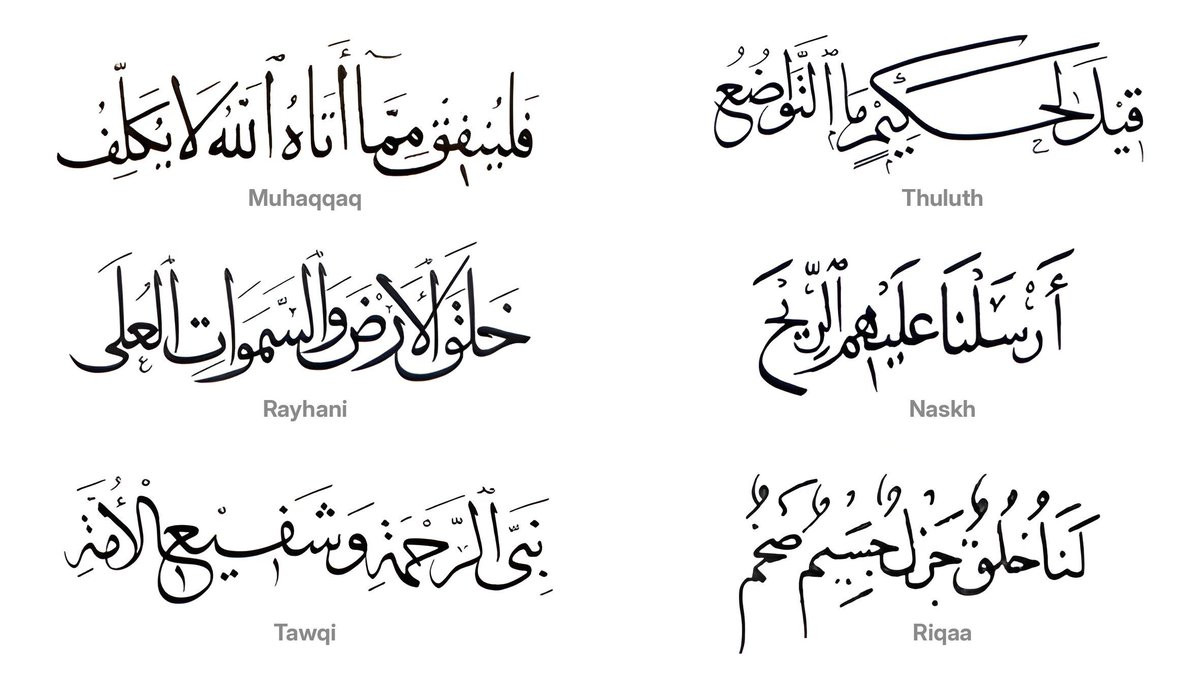 فَلْيُنفِقْ مِمَّآ أَتَاهُ ٱللَّهُ لَا يُكَلِّفُ
Muhaqqaq
قِيْلَ لِلحَكِيْمِ مَا ٱلتَّوَاضُعُ
Thuluth
خَلَقَ ٱلْأَرْضَ وَٱلسَّمَوَاتِ ٱلْعُلَى
Rayhani
أَرْسَلْنَا عَلَيْهِمُ ٱلرِّيحَ
Naskh
نَبِيِّ ٱلرَّحْمَةِ وَشَفِيْعِ ٱلْأُمَّةِ
Tawqi
لَنَا خُلُقٌ جَزْلٌ جَسِيمٌ ضَخْمٌ
Riqaa